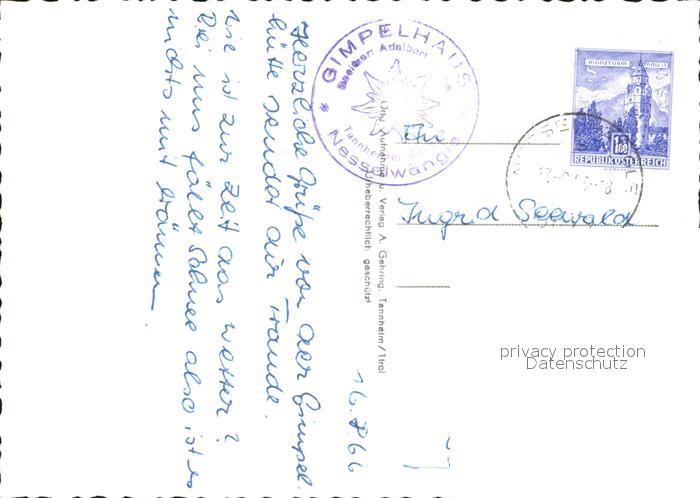 16.8.66
Herzliche Grüße von der Gimpel
hütte sendet dir Traude.
Wie ist zur Zeit das Wetter?
Bei uns fällt Schnee also ist es
nichts mit bräunen.
* GIMPELHAUS
Besitzer: Adalbert
Tannheimer
Nesselwängle
Orig. Aufnahme u. Verlag A. Gehring, Tannheim/Tirol
Urheberrechtlich geschützt
MÜNZTURM HALL I.T.
1.50
REPUBLIK ÖSTERREICH
Ingrid Seewald
privacy protection
Datenschutz